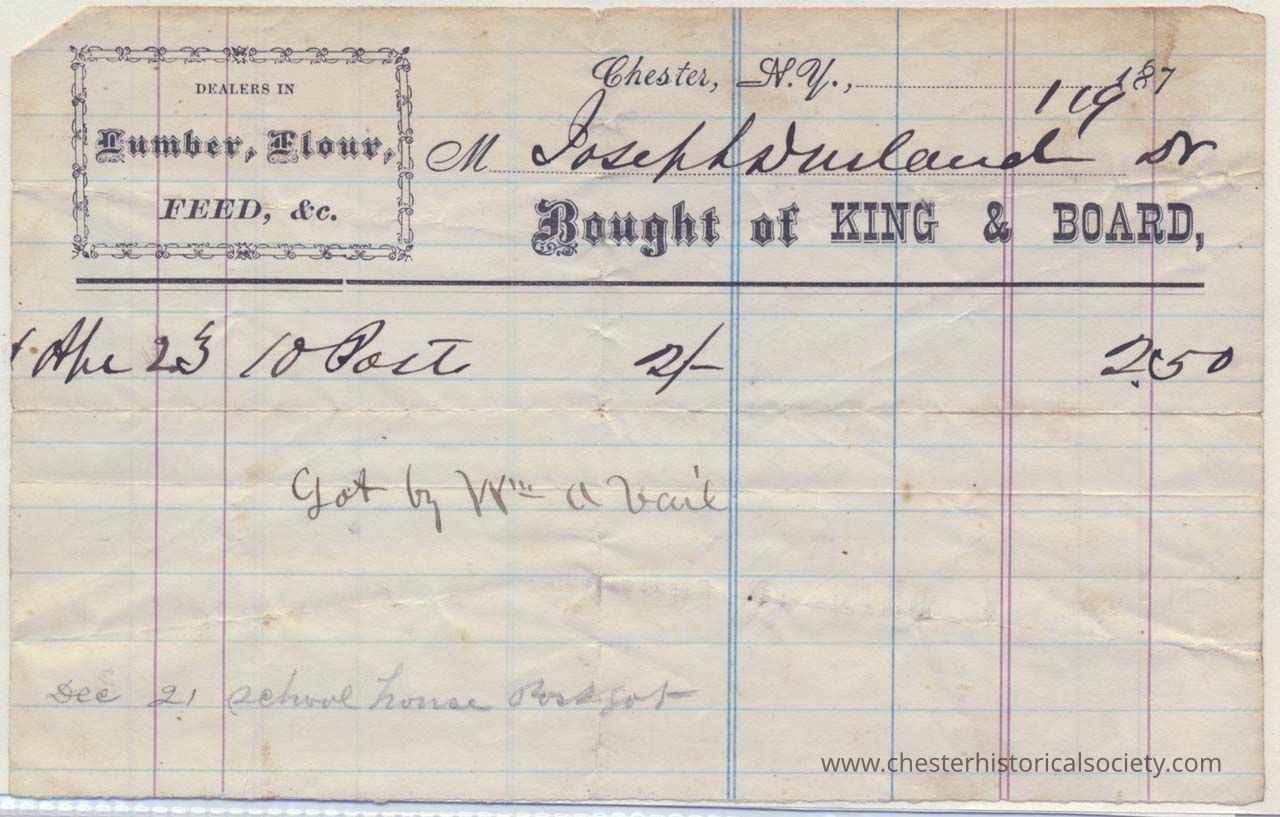 DEALERS IN
Lumber, Flour,
FEED, &c.
Chester, N.Y., 187
M Joseph Durland Dr
Bought of KING & BOARD,
Apr 23 10 Posts 2/- 2.50
Got by Wm A Vail
Dec 21 school house Posts got
www.chesterhistoricalsociety.com